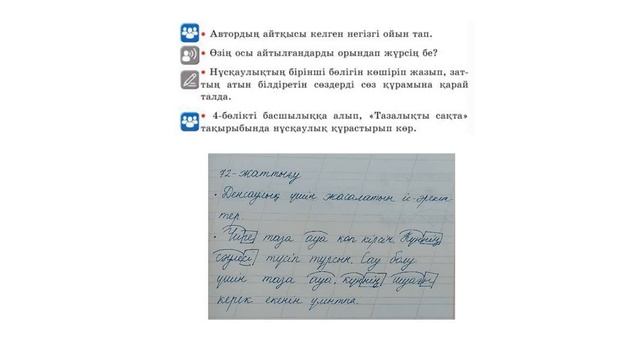 • Автордың айтқысы келген негізгі ойын тап.
• Өзің осы айтылғандарды орындап жүрсің бе?
• Нұсқаулықтың бірінші бөлігін көшіріп жазып, зат-
тың атын білдіретін сөздерді сөз құрамына қарай
талда.
• 4-бөлікті басшылыққа алып, «Тазалықты сақта»
тақырыбында нұсқаулық құрастырып көр.
72-жаттығу
• Денсаулық үшін жасалатын іс-әрекет
тер.
• Үйге таза ауа көп кірсін. Күннің
сәулесі түсіп тұрсын. Сау болу
үшін таза ауа, күннің шуағы
керек екенін ұмытпа.